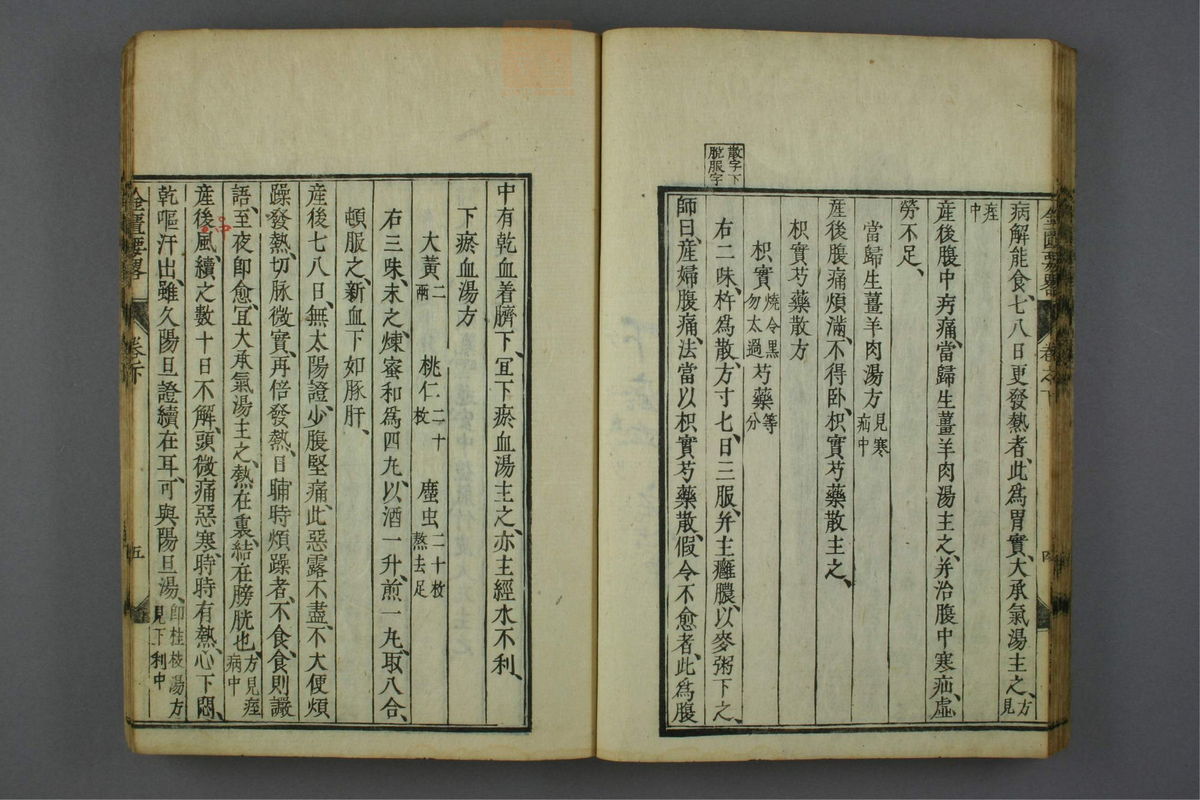 金匱要略 卷之下 四
病解能食、七八日更發熱者、此爲胃實、大承氣湯主之、方見
痓中
產後腹中㽲痛、當歸生薑羊肉湯主之、并治腹中寒疝虛
勞不足、
當歸生薑羊肉湯方 見寒疝中
產後腹痛煩滿、不得臥、枳實芍藥散主之、
枳實芍藥散方
枳實 燒令黑勿太過 芍藥 等分
右二味、杵爲散、方寸七、日三服、并主癰膿、以麥粥下之、
散字下脫服字
師曰、產婦腹痛、法當以枳實芍藥散、假令不愈者、此爲腹
中有乾血着臍下、宜下瘀血湯主之、亦主經水不利、
下瘀血湯方
大黃 二兩 桃仁 二十枚 䗪虫 二十枚熬去足
右三味、末之、煉蜜和爲四丸、以酒一升、煎一丸、取八合、
頓服之、新血下如豚肝、
產後七八日、無太陽證、少腹堅痛、此惡露不盡、不大便煩
躁發熱、切脉微實、再倍發熱、日晡時煩躁者、不食、食則讝
語、至夜卽愈、宜大承氣湯主之、熱在裏、結在膀胱也、方見痓病中
產後風、續之數十日不解、頭微痛惡寒、時時有熱、心下悶、
乾嘔汗出、雖久陽旦證續在耳、可與陽旦湯、卽桂枝湯方見下利中
金匱要畧 卷下 五